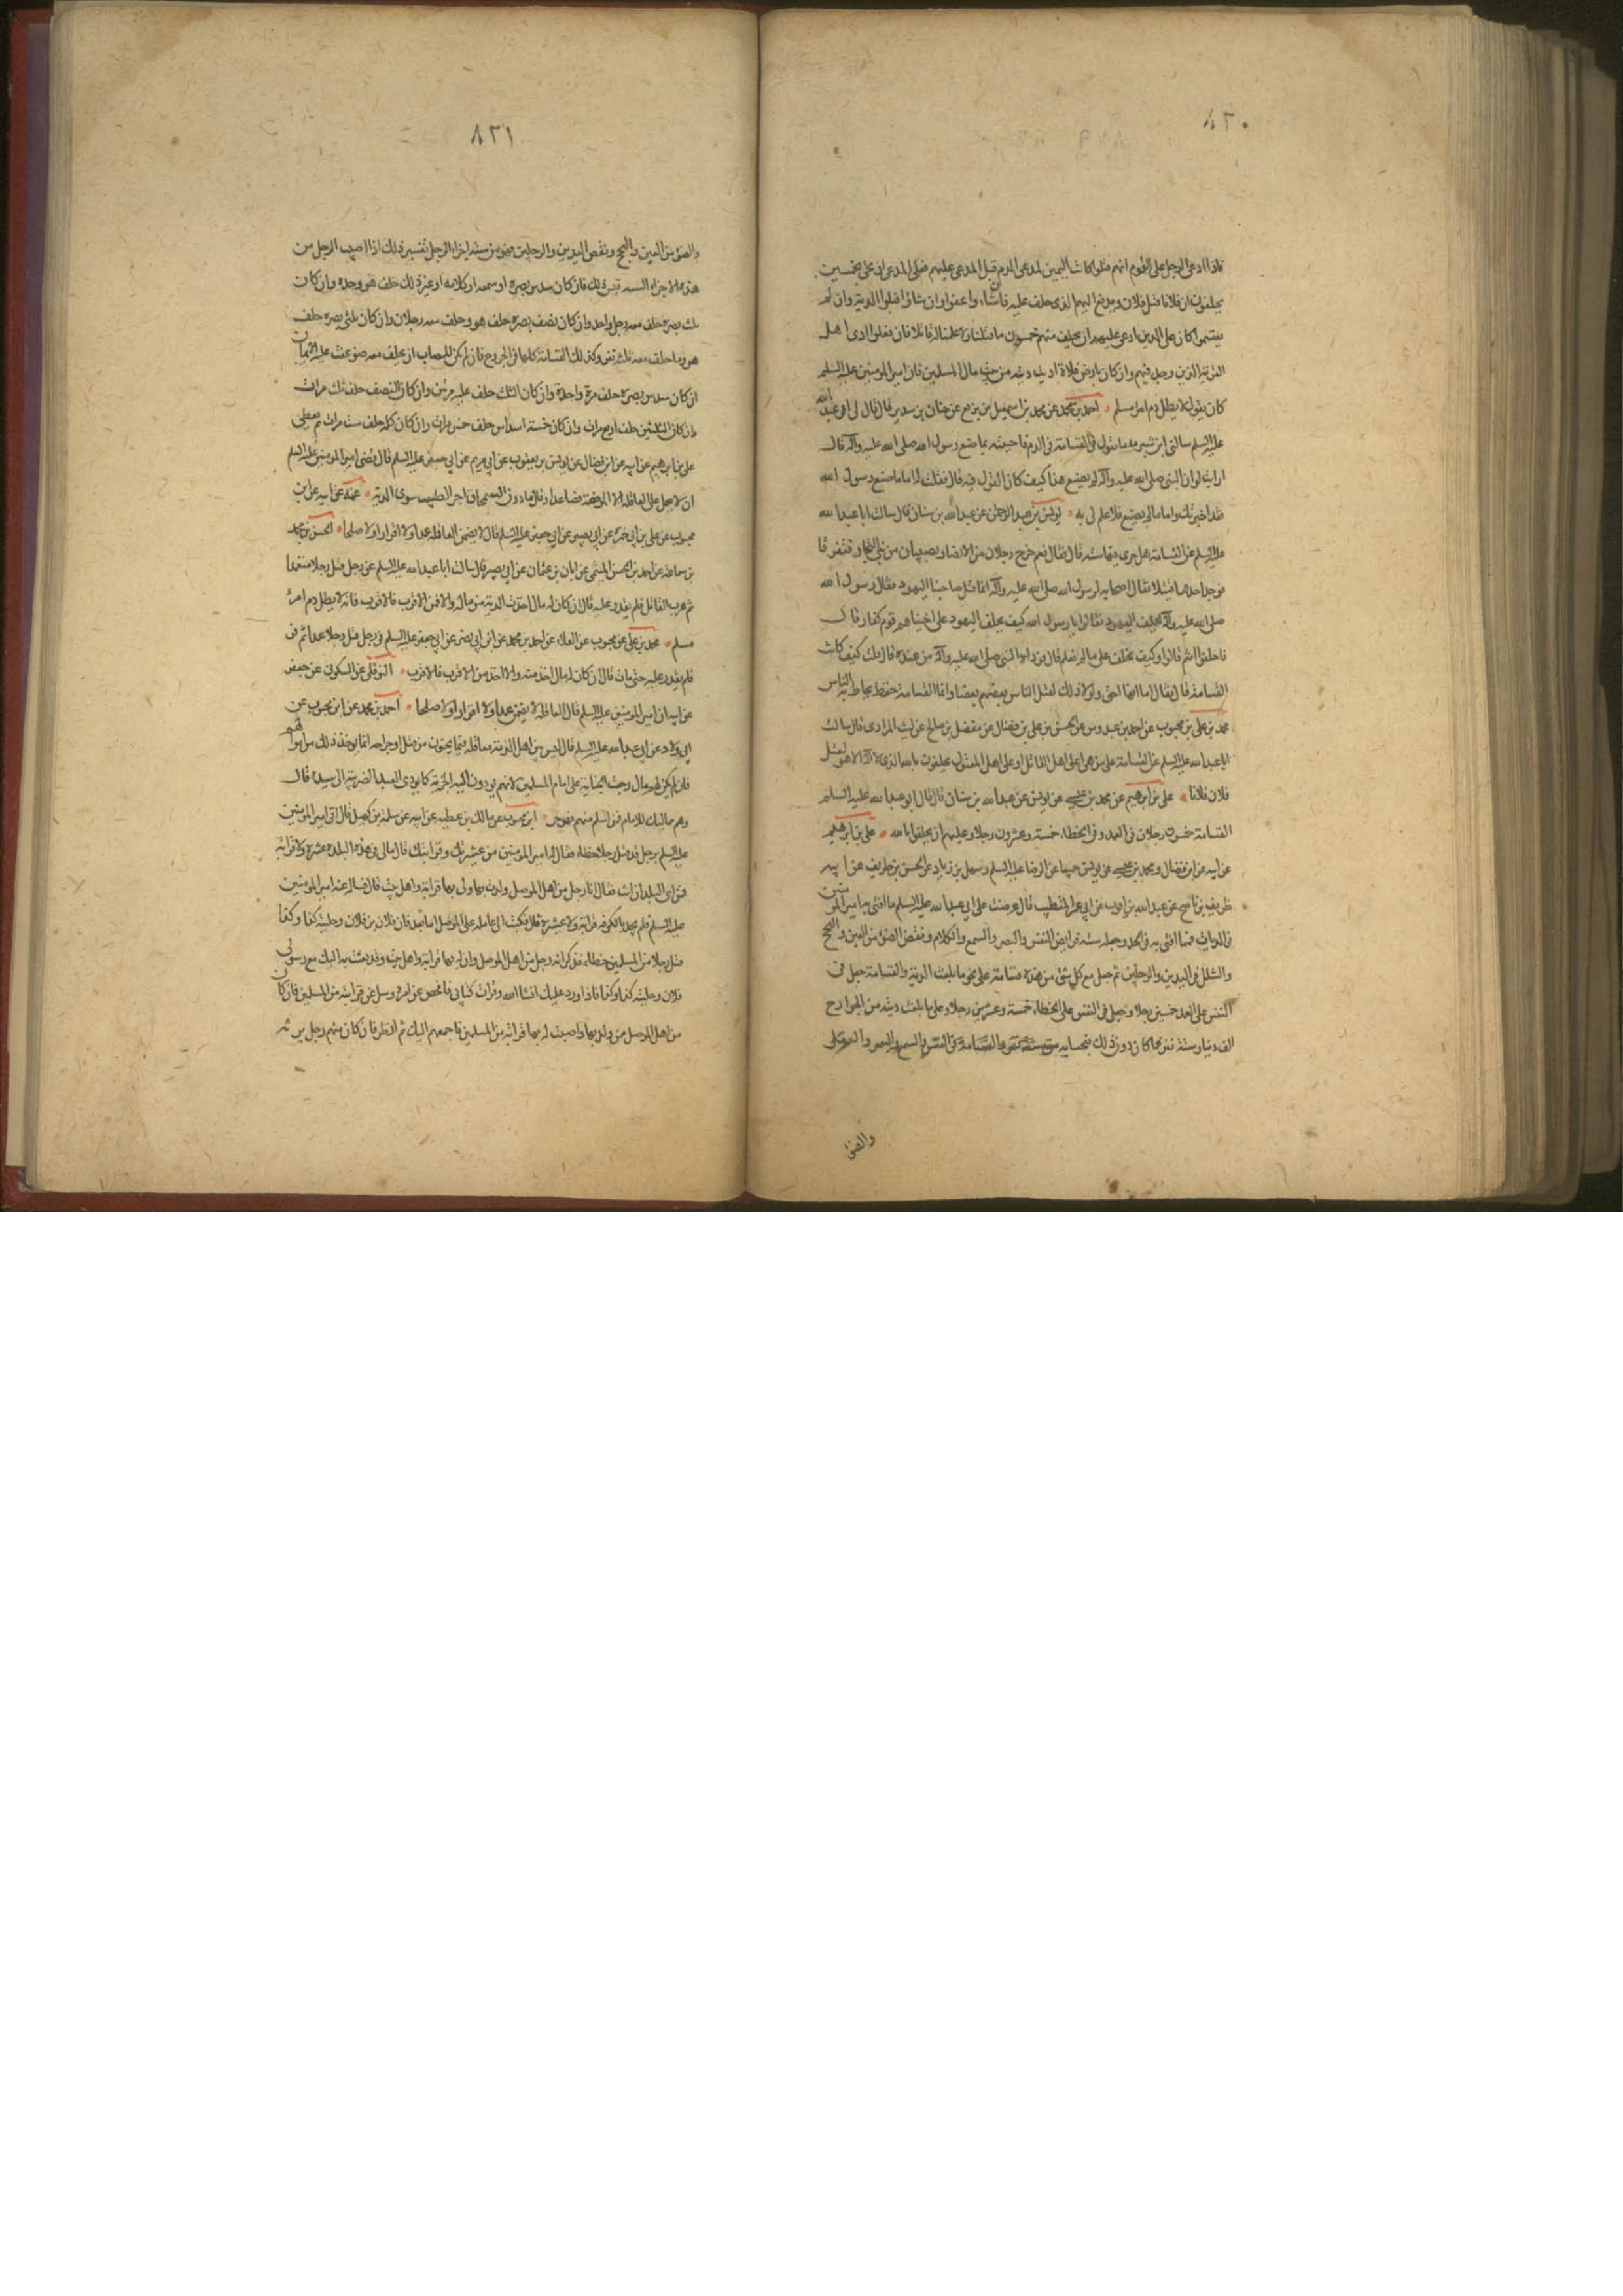 ٨٢٠
فاذا ادعى الرجل على القوم انهم قتلوا كانت اليمين لمدعى الدم قبل المدعى عليهم فعلى المدعى ان يجئ بخمسين
يحلفون ان فلانا قتل فلان ويدفع اليهم الذى حلف عليه فان شاؤا عفوا وان شاؤا قبلوا الدية وان لم
يقسموا كان على الذين ادعى عليهم ان يحلف منهم خمسون ما قتلنا ولا علمنا له قاتلا فان فعلوا ادى اهل
القرية الذين وجد فيهم وان كان بارض فلاة اديت ديته من بيت مال المسلمين فان امير المؤمنين عليه السلم
كان يقول لا يطل دم امرء مسلم احمد بن محمد عن محمد بن اسمعيل بن بزيع عن حنان بن سدير قال قال لى ابو عبد الله
عليه السلم سالنى ابن شبرمه ما تقول فى القسامة فى الدم فاجبته بما صنع رسول الله صلى الله عليه وآله قال
ارايت لو ان النبى صلى الله عليه وآله لم يصنع هذا كيف كان القول فيه قال فقلت له اما ما صنع رسول الله
فقد اخبرتك واما ما لم يصنع فلا علم لى به يونس بن عبد الرحمن عن عبد الله بن سنان قال سالت ابا عبد الله
عليه السلم عن القسامة هل جرى فيها سنه قال فقال نعم خرج رجلان من الانصار يصيبان من بنى النجار فتفرقا
فوجد احدهما قتيلا فقال اصحابه لرسول الله صلى الله عليه وآله انما قتل صاحبنا اليهود فقال رسول الله
صلى الله عليه وآله يحلف اليهود فقالوا يا رسول الله كيف يحلف اليهود على اخينا وهم قوم كفار قال
فاحلفوا انتم قالوا وكيف نحلف على ما لم نعلم قال فوداه النبى صلى الله عليه وآله من عنده قال قلت كيف كانت
القسامة قال فقال اما انها حق ولولا ذلك لقتل الناس بعضهم بعضا وانما القسامة حفظ يحاط به الناس
محمد بن على بن محبوب عن احمد بن عبدوس عن الحسن بن على بن فضال عن مفضل بن صالح عن ليث المرادى قال سالت
ابا عبد الله عليه السلم عن القسامة على من هى اعلى اهل القاتل او على اهل المقتول يحلفون بالله الذى لا اله الا هو لقتل
فلان فلانا على بن ابرهيم عن محمد بن عيسى عن يونس عن عبد الله بن سنان قال قال ابو عبد الله عليه السلم
القسامة خمسون رجلا فى العمد وفى الخطاء خمسة وعشرون رجلا وعليهم ان يحلفوا بالله على بن ابرهيم
عن ابيه عن ابن فضال ومحمد بن عيسى عن يونس جميعا عن الرضا عليه السلم وسهل بن زياد عن الحسن بن ظريف عن ابيه
ظريف بن ناصح عن عبد الله بن ايوب عن ابى عمر المتطبب قال عرضت على ابى عبد الله عليه السلم ما افتى به امير المؤمنين
فى الديات فمما افتى به فى الجسد وجعله ستة فرايض النفس والبصر والسمع والكلام ونقص الضؤ من العين والبحح
والشلل فى اليدين والرجلين ثم جعل مع كل شئ من هذه قسامة على نحو ما بلغت الدية والقسامة جعل فى
النفس على العمد خمسين رجلا وجعل فى النفس على الخطاء خمسة وعشرين رجلا وعلى ما بلغت ديته من الجوارح
الف دينار ستة نفر فما كان دون ذلك فبحسابه من ستة نفر والقسامة فى النفس والسمع والبصر والعقل
والضؤ
٨٢١
والضؤ من العين والبحح ونقص اليدين والرجلين فهو من ستة اجزاء الرجل تفسير ذلك اذا اصيب الرجل من
هذه الاجزاء الستة وقيس ذلك فان كان سدس بصره او سمعه او كلامه او غير ذلك حلف هو وحده وان كان
ثلث بصره حلف معه رجل واحد وان كان نصف بصره حلف هو وحلف معه رجلان وان كان ثلثى بصره حلف
هو وحلف معه ثلثة نفر وكذلك القسامة كلها فى الجروح فان لم يكن للمصاب من يحلف معه ضوعفت عليه الايمان
ان كان سدس بصره حلف مرة واحدة وان كان الثلث حلف عليه مرتين وان كان النصف حلف ثلث مرات
وان كان الثلثين حلف اربع مرات وان كان خمسة اسداس حلف خمس مرات وان كان كله حلف ست مرات ثم يعطى
على بن ابرهيم عن ابيه عن ابن فضال عن يونس بن يعقوب عن ابى مريم عن ابى جعفر عليه السلم قال قضى امير المؤمنين عليه السلم
ان لا يحمل على العاقله الا الموضحة فصاعدا وقال ما دون السمحاق اجر الطبيب سوى الدية عنه عن ابيه عن ابن
محبوب عن على بن ابى حمزه عن ابى بصير عن ابى جعفر عليه السلم قال لا يضمن العاقله عمدا ولا اقرارا ولا صلحا الحسن بن محمد
بن سماعة عن احمد بن الحسن الميثمى عن ابان بن عثمان عن ابى بصير قال سالت ابا عبد الله عليه السلم عن رجل قتل رجلا متعمدا
ثم هرب القاتل فلم يقدر عليه قال ان كان له مال اخذت الدية من ماله والا فمن الاقرب فالاقرب فانه لا يطل دم امرء
مسلم محمد بن على بن محبوب عن العلا عن احمد بن محمد عن ابن ابى نصر عن ابى جعفر عليه السلم فى رجل قتل رجلا عمدا ثم فر
فلم يقدر عليه حتى مات قال ان كان له مال اخذ منه والا اخذ من الاقرب فالاقرب النوفلى عن السكونى عن جعفر
عن ابيه ان امير المؤمنين عليه السلم قال العاقلة لا يضمن عمدا ولا اقرارا ولا صلحا احمد بن محمد عن ابن محبوب عن
ابى ولاد عن ابى عبد الله عليه السلم قال ليس بين اهل الذمة معاقله فيما يجنون من قتل او جراحه انما يؤخذ ذلك من اموالهم
فان لم يكن لهم مال رجعت الجناية على امام المسلمين لانهم يؤدون اليه الجزية كما يؤدى العبد الضريبة الى سيده قال
وهم مماليك للامام فمن اسلم منهم فهو حر ابن محبوب عن مالك بن عطيه عن ابيه عن سلمة بن كهيل قال اتى امير المؤمنين
عليه السلم برجل قد قتل رجلا خطاء فقال له امير المؤمنين من عشيرتك وقرابتك قال مالى فى هذه البلدة عشيرة ولا قرابة
فمن اى البلدان انت فقال انا رجل من اهل الموصل ولدت بها ولى بها قرابة واهل بيت قال فسال عنه امير المؤمنين
عليه السلم فلم يجد بالكوفه قرابة ولا عشيرة قال فكتب الى عامله على الموصل اما بعد فان فلان بن فلان وحليته كذا وكذا
قتل رجلا من المسلمين خطاء فذكر انه رجل من اهل الموصل وان له بها قرابة واهل بيت وقد بعثت به اليك مع رسولى
فلان وحليته كذا وكذا فاذا ورد عليك انشا الله وقرات كتابى فافحص عن امره وسل عن قرابته من المسلمين فان كان
من اهل الموصل ممن ولد بها واصبت له بها قرابة من المسلمين فاجمعهم اليك ثم انظر فان كان منهم رجل يرثه